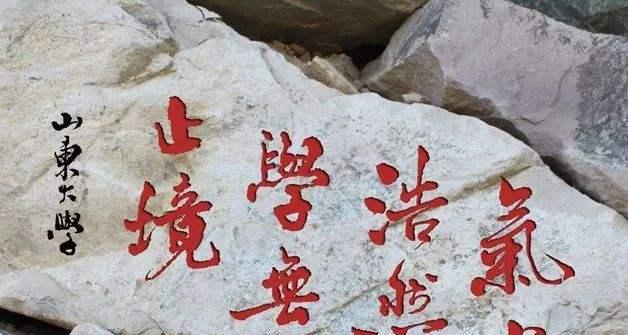 氣
浩然
學無
止境
山東大學